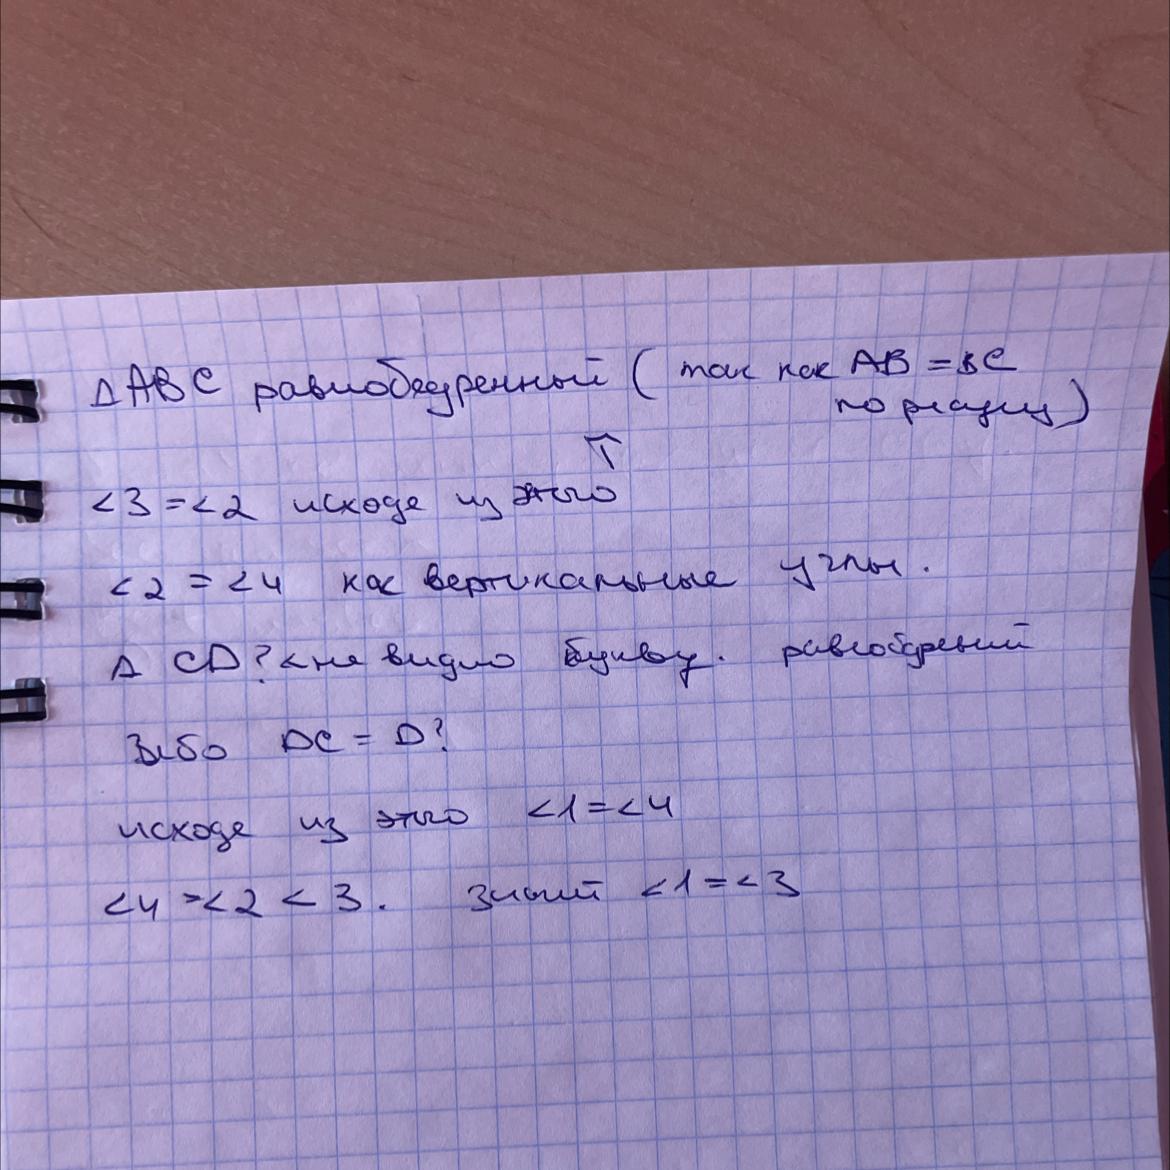 ∆ABC равнобедренный ( так как AB = BC
по рисунку )
<3 = <2 исходя из этого ↑
<2 = <4 как вертикальные углы.
∆ CD? < не видно букву. равнобдреный
Либо DC = D?
исходя из этого <1 = <4
<4 = <2 < 3. Значит <1 = <3